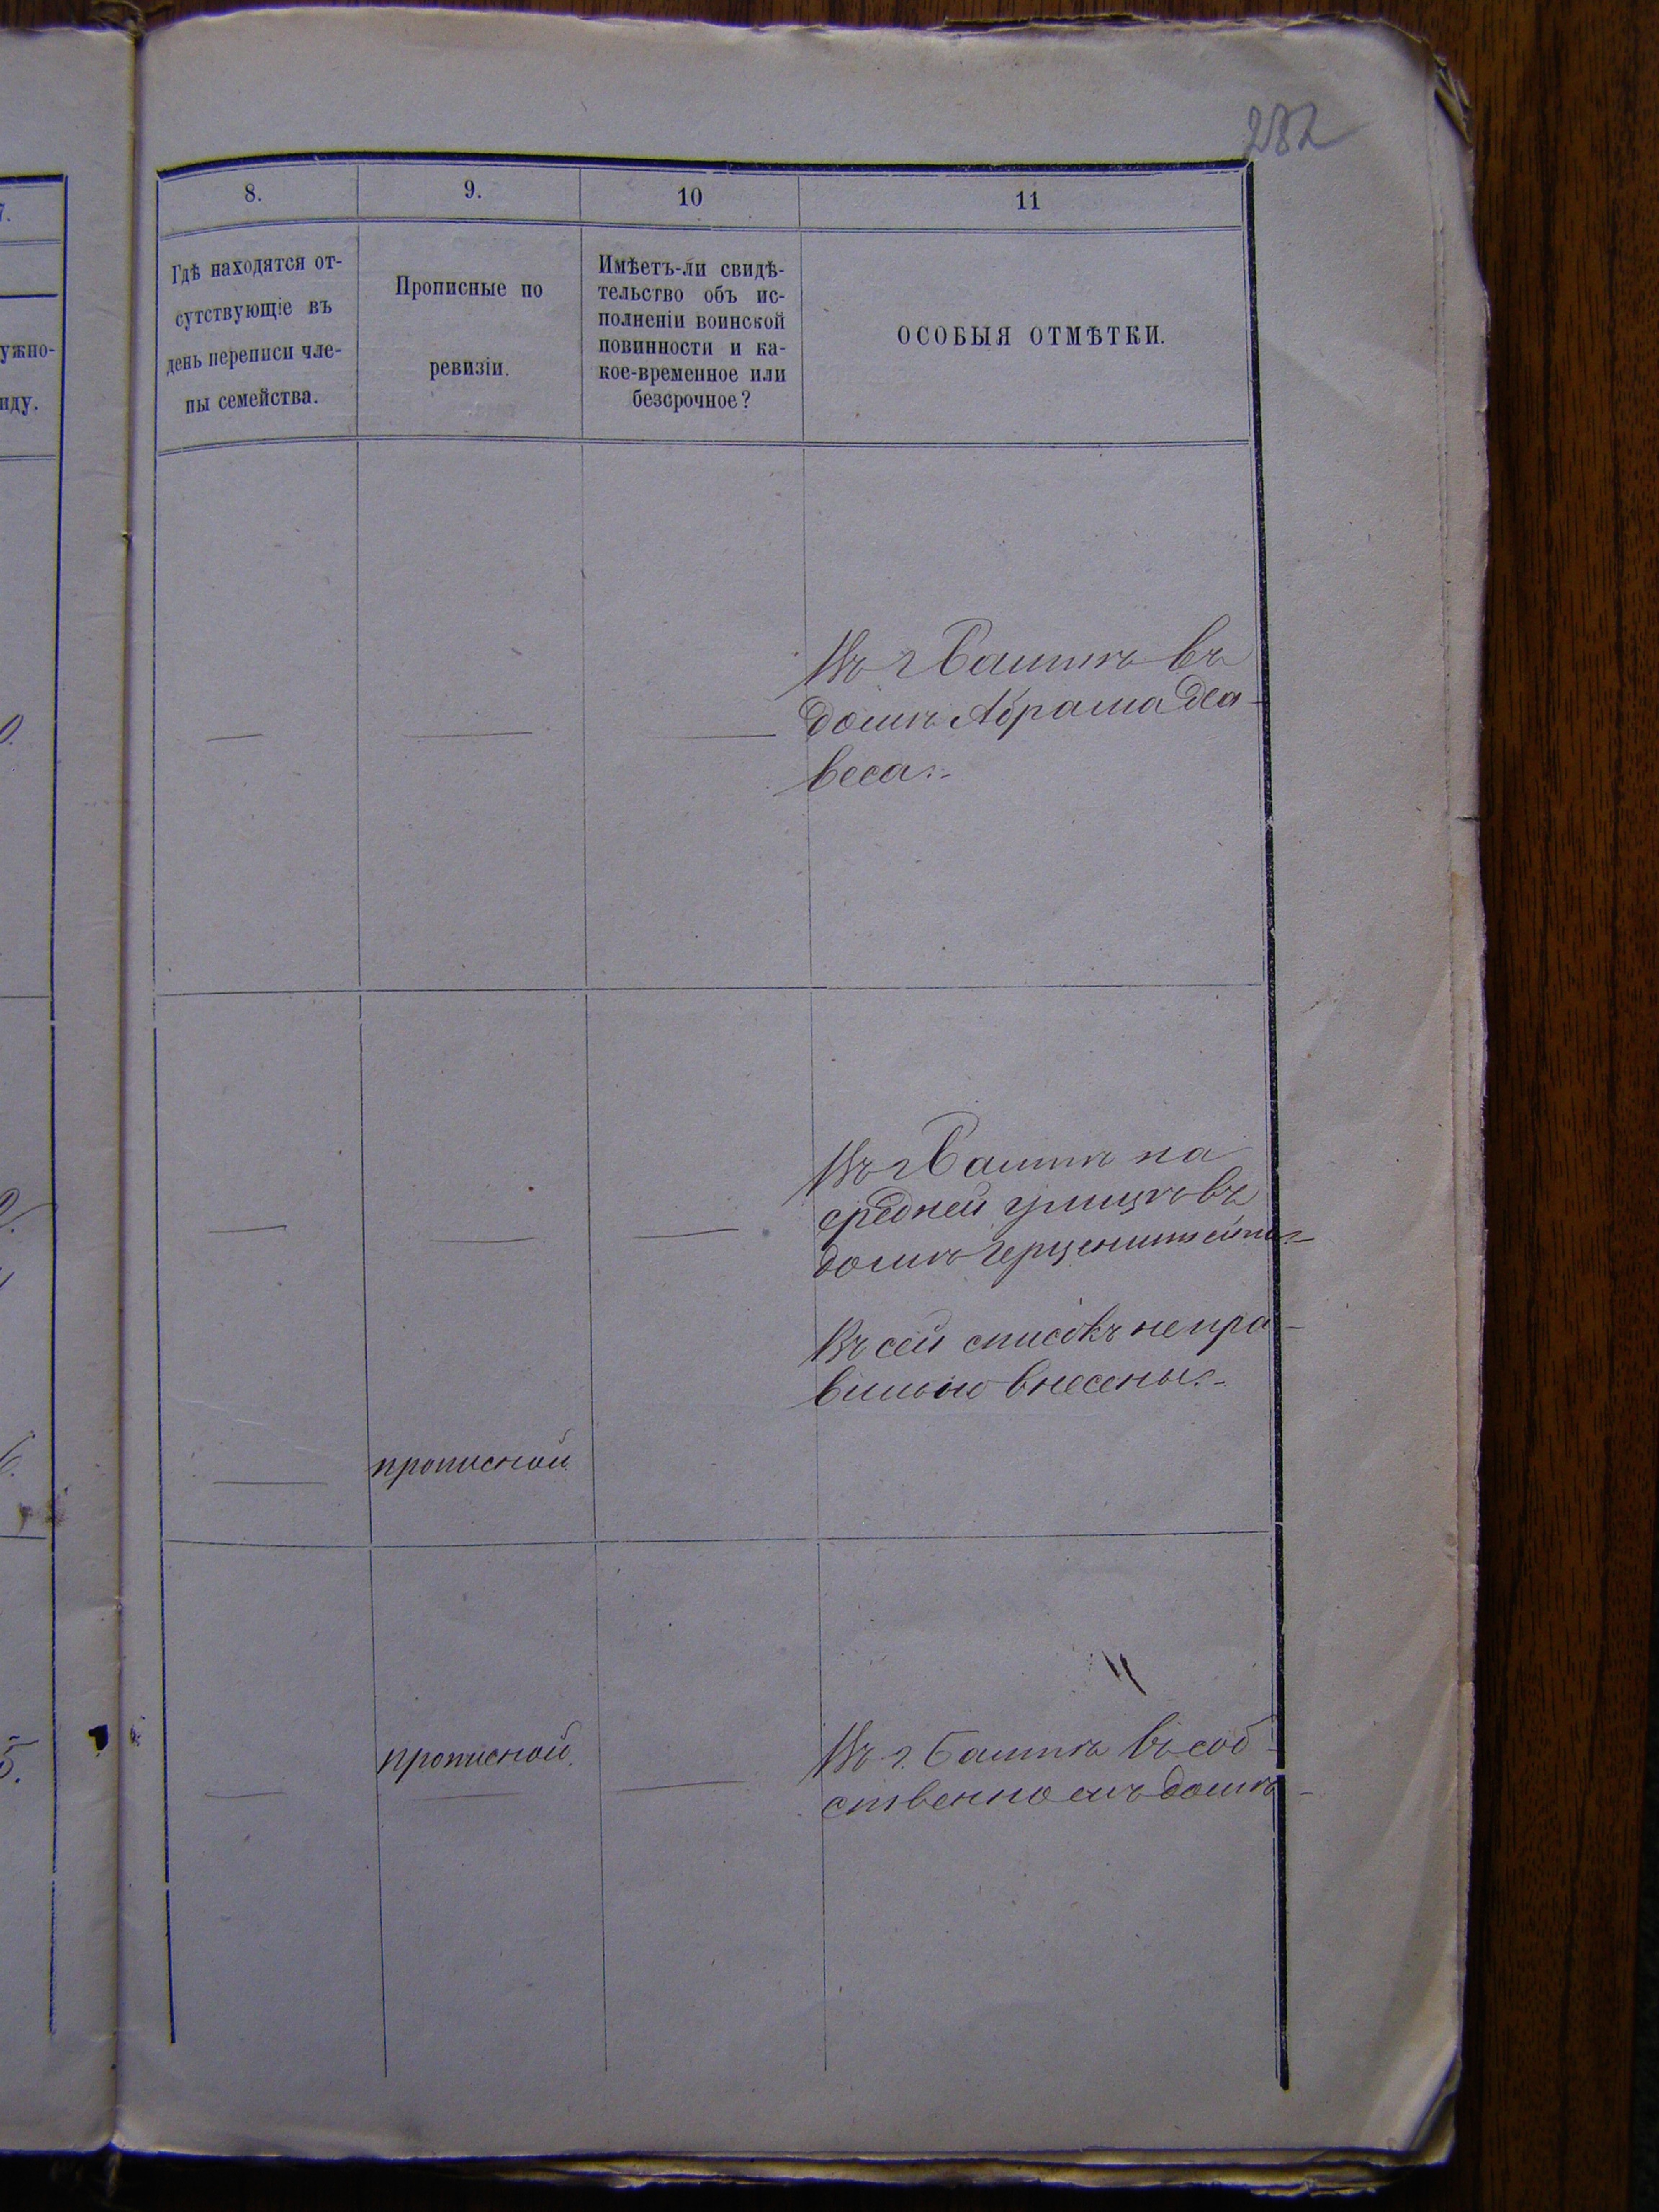 282
7.
8.
9.
10
11
ужно-
иду.
Гдѣ находятся от-
сутствующіе въ
день переписи чле-
ны семейства.
Прописные по
ревизіи.
Имѣетъ-ли свидѣ-
тельство объ ис-
полненіи воинской
повинности и ка-
кое-временное или
безсрочное?
ОСОБЫЯ ОТМѢТКИ.
Въ г. въ
домѣ Абрама
веса.
Въ г. на
средней улицѣ въ
домѣ
Въ сей списокъ непра-
вильно внесены.
прописной
5.
прописной
Въ г. въ соб-
ственномъ домѣ